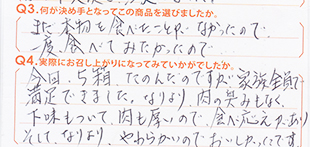 Q3.何が決め手となってこの商品を選びましたか。
まだ本物を食べたことがなかったので、
一度食べてみたかったので…
Q4.実際にお召し上がりになってみていかがでしたか。
今回、5箱、たのんだのですが家族全員で
満足できました。なにより、肉の臭みもなく、
下味もついて、肉も厚いので、食べ応えがあり
そして、なにより、やわらかいのでおいしかったです